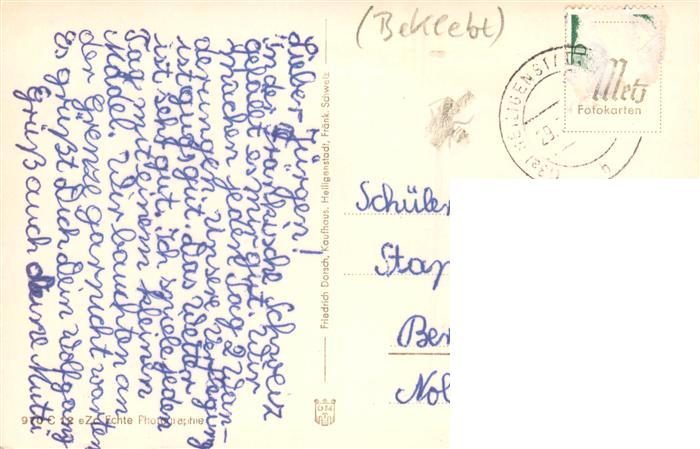 (Beklebt)
HEILIGENSTADT
Metz
Fotokarten
Lieber Jürgen!
In der Fränkische Schweiz
gefällt es mir gut. Wir
machen jeden Tag 2 Wan-
derungen. Unsere Verflegung
ist auch gut. Das Wetter
ist sehr gut. Ich spiele jeden
Tag mit einem kleinen
Mädel. Wir bauchten an
der Grenze gar nicht warten
Es grüßt Dich dein Wolfgang
Grüß auch deine Mutti
Friedrich Dorsch, Kaufhaus, Heiligenstadt, Fränk. Schweiz
Schüler
Stap
Ber
Nol
eZd Echte Photographie